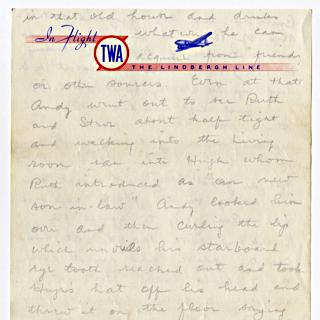 in that old house and drinks
In Flight what wine he can
TWA
acquire from friends
THE LINDBERGH LINE
or other sources. Even at that
Andy went out to see Ruth
and Stew about half tight
and walking into the living
room ran into Hugh whom
Ruth introduced as "our new
son-in-law" Andy looked him
over and then curling the lip
which unveils his starboard
eye tooth reached out and took
Hugh's hat off his head and
threw it on the floor saying